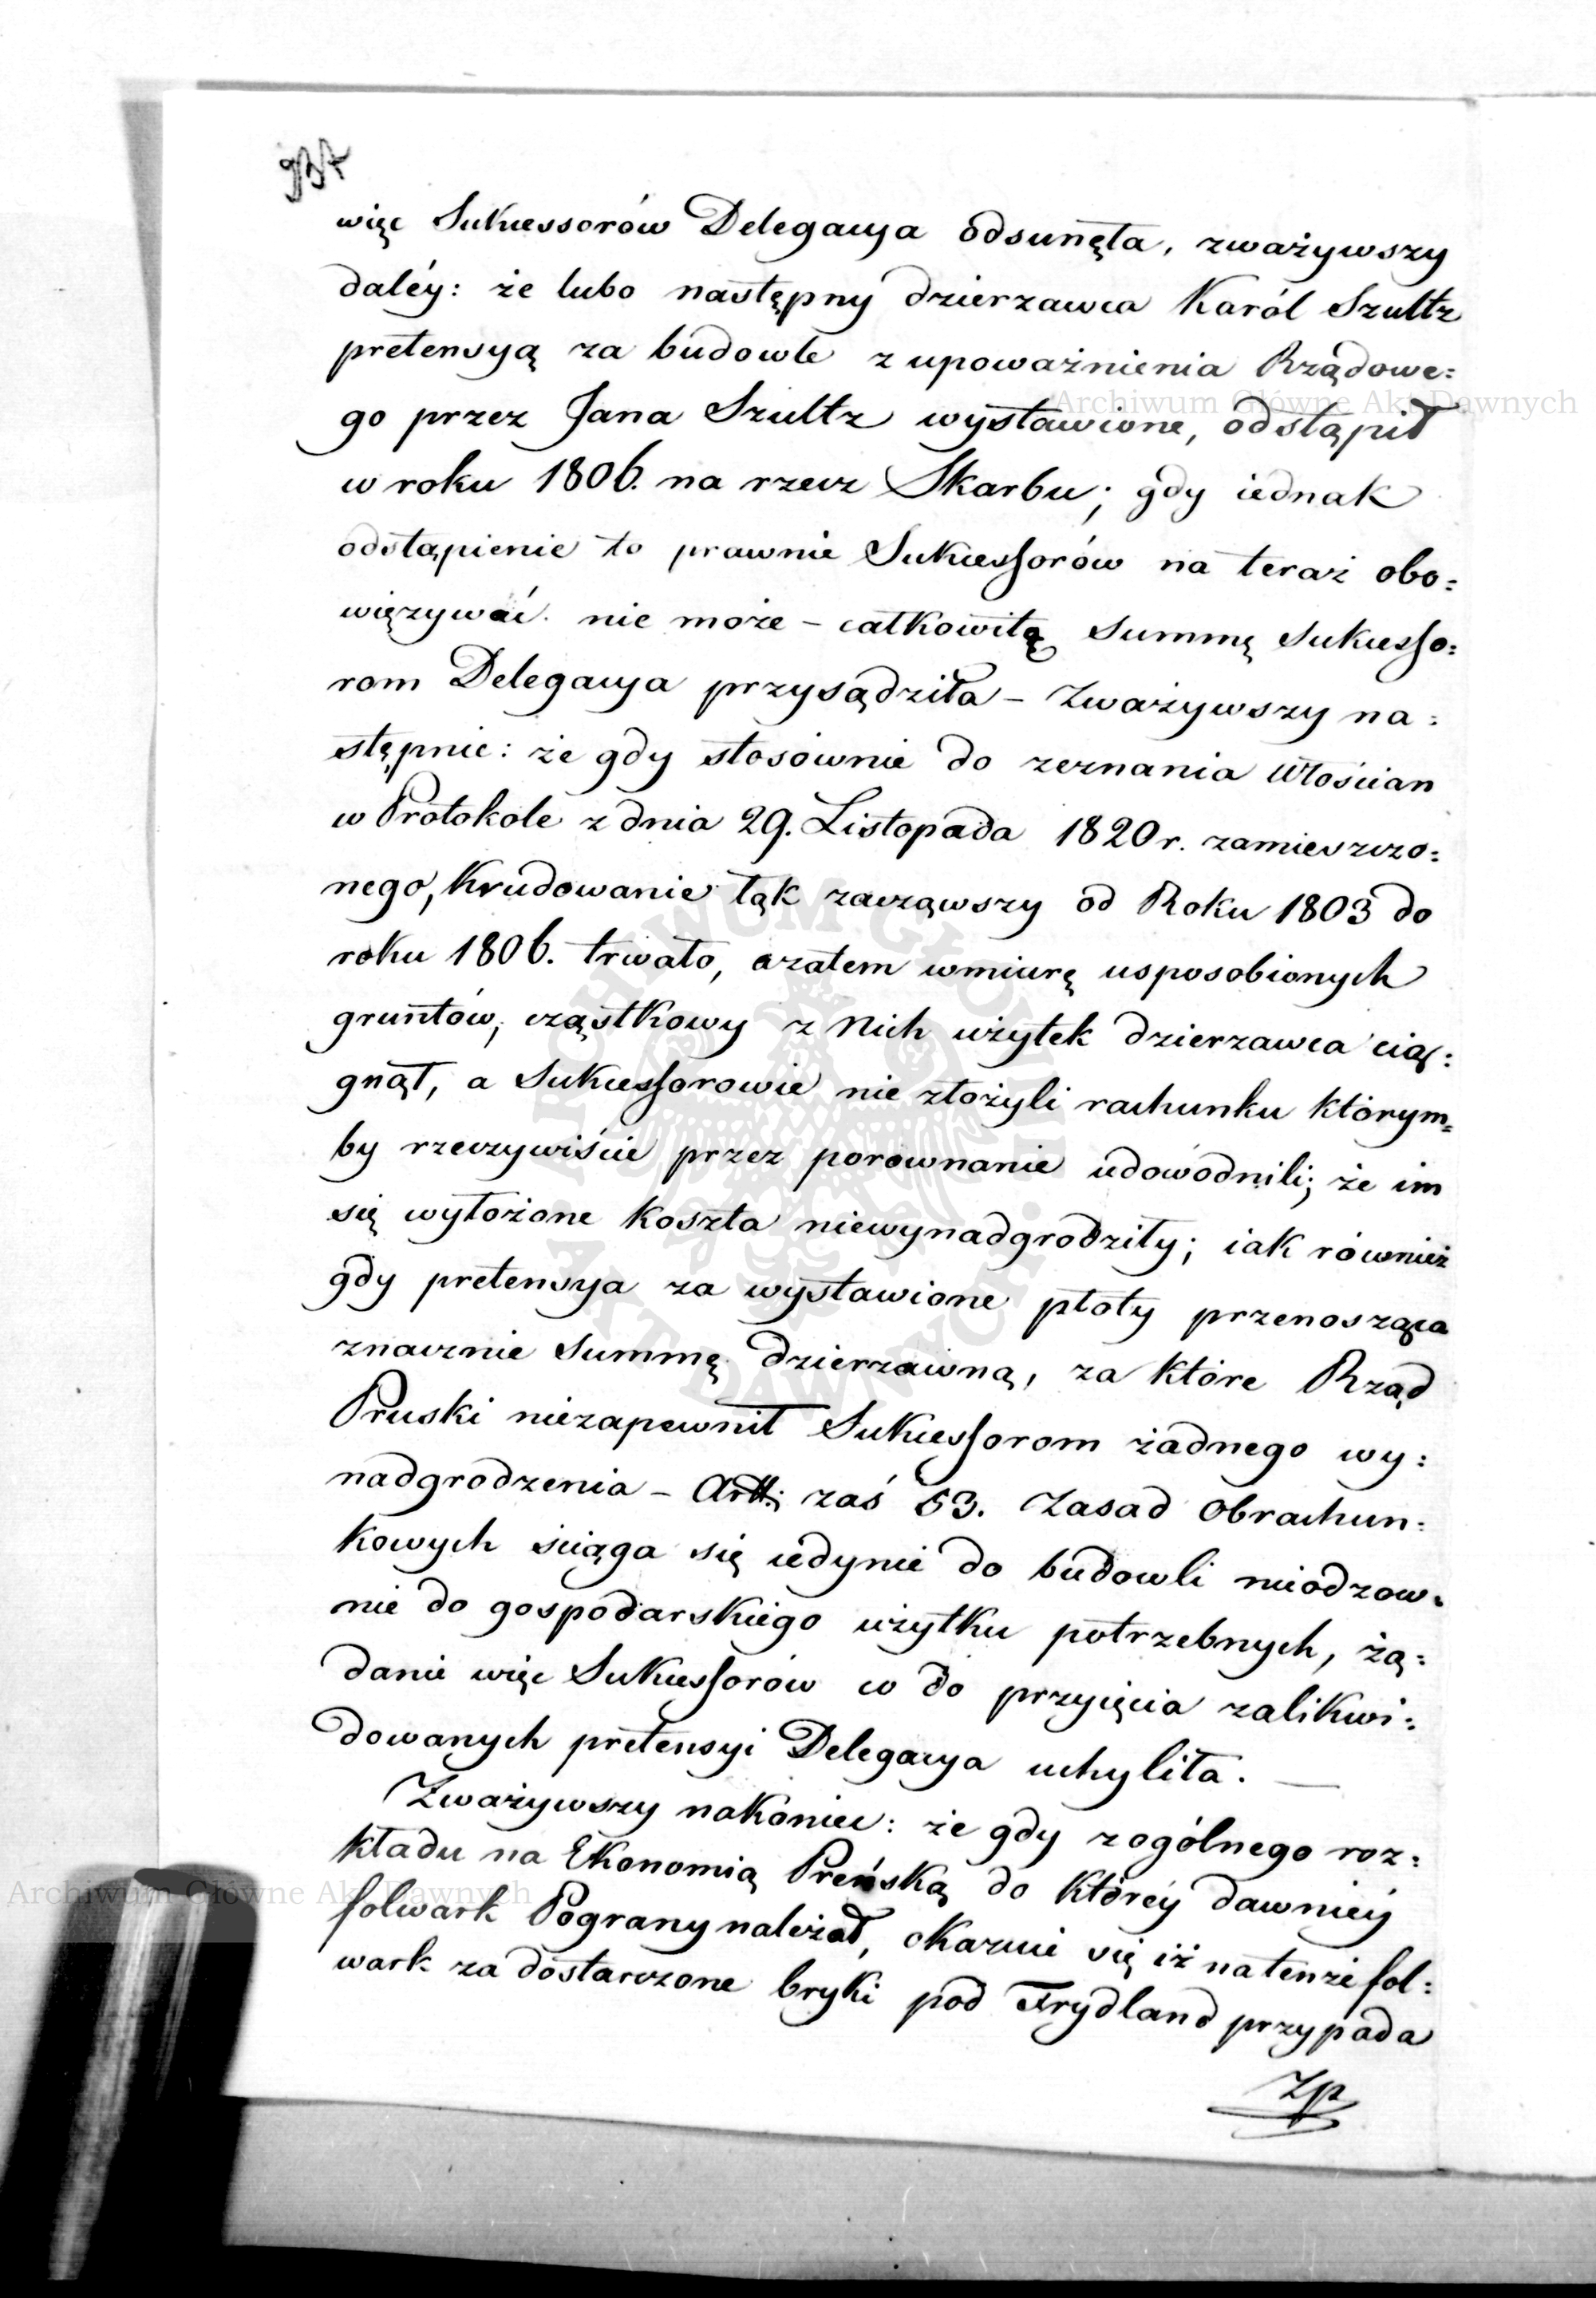 więc Sukcessorów Delegacya odsunęła, zważywszy
daléy: że lubo następny dzierzawca Karól Szultz
pretensyą za budowle z upoważnienia Rządowe=
go przez Jana Szultz wystawione, odstąpił
w roku 1806. na rzecz Skarbu; gdy iednak
odstąpienie to prawnie Sukcessorów na teraz obo=
więzywać nie może – całkowitą summę sukcesso=
rom Delegacya przysądziła – Zważywszy na=
stępnie: że gdy stosownie do zeznania Włościan
w Protokole z dnia 29. Listopada 1820 r. zamieszczo=
nego, Krudowanie łąk zacząwszy od Roku 1803 do
roku 1806. trwało, azatem wmiarę usposobionych
gruntów, cząstkowy z Nich użytek dzierzawca cią=
gnął, a Sukcessorowie nie złożyli rachunku którym=
by rzeczywiście przez porównanie udowodnili; że im
się wyłożone koszta niewynadgrodziły; iak również
gdy pretensya za wystawione płoty przenosząca
znacznie summę dzierzawną, za które Rząd
Pruski niezapewnił Sukcessorom żadnego wy=
nadgrodzenia – Artt: zaś 53. Zasad Obrachun=
kowych ściąga się iedynie do budowli niiodzow=
nie do gospodarskiego użytku potrzebnych, żą=
danie więc Sukcessorów co do przyięcia zalikwi=
dowanych pretensyi Delegacya uchyliła. —
Zważywszy nakoniec: że gdy zogólnego roz=
kładu na Ekonomią Preńską do któréy dawniéy
folwark Pograny należał, okazuie się iż na tenże fol=
wark za dostarczone bryki pod Frydland przypada
Zp
Archiwum Główne Akt Dawnych
Archiwum Główne Akt Dawnych
ARCHIWUM GŁÓWNE AKT DAWNYCH